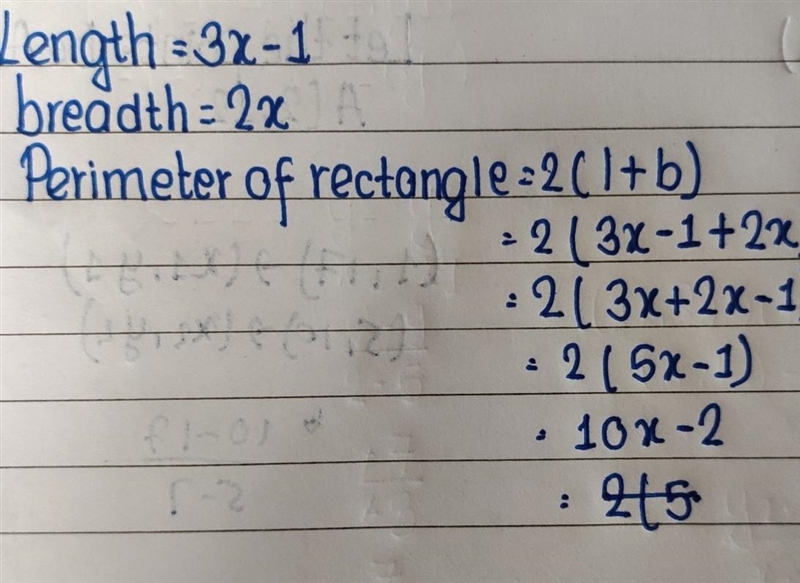 Length = 3x - 1
breadth = 2x
Perimeter of rectangle = 2 ( l + b )
= 2 ( 3x - 1 + 2x
= 2 ( 3x + 2x - 1
= 2 ( 5x - 1 )
= 10x - 2
= 2 ( 5